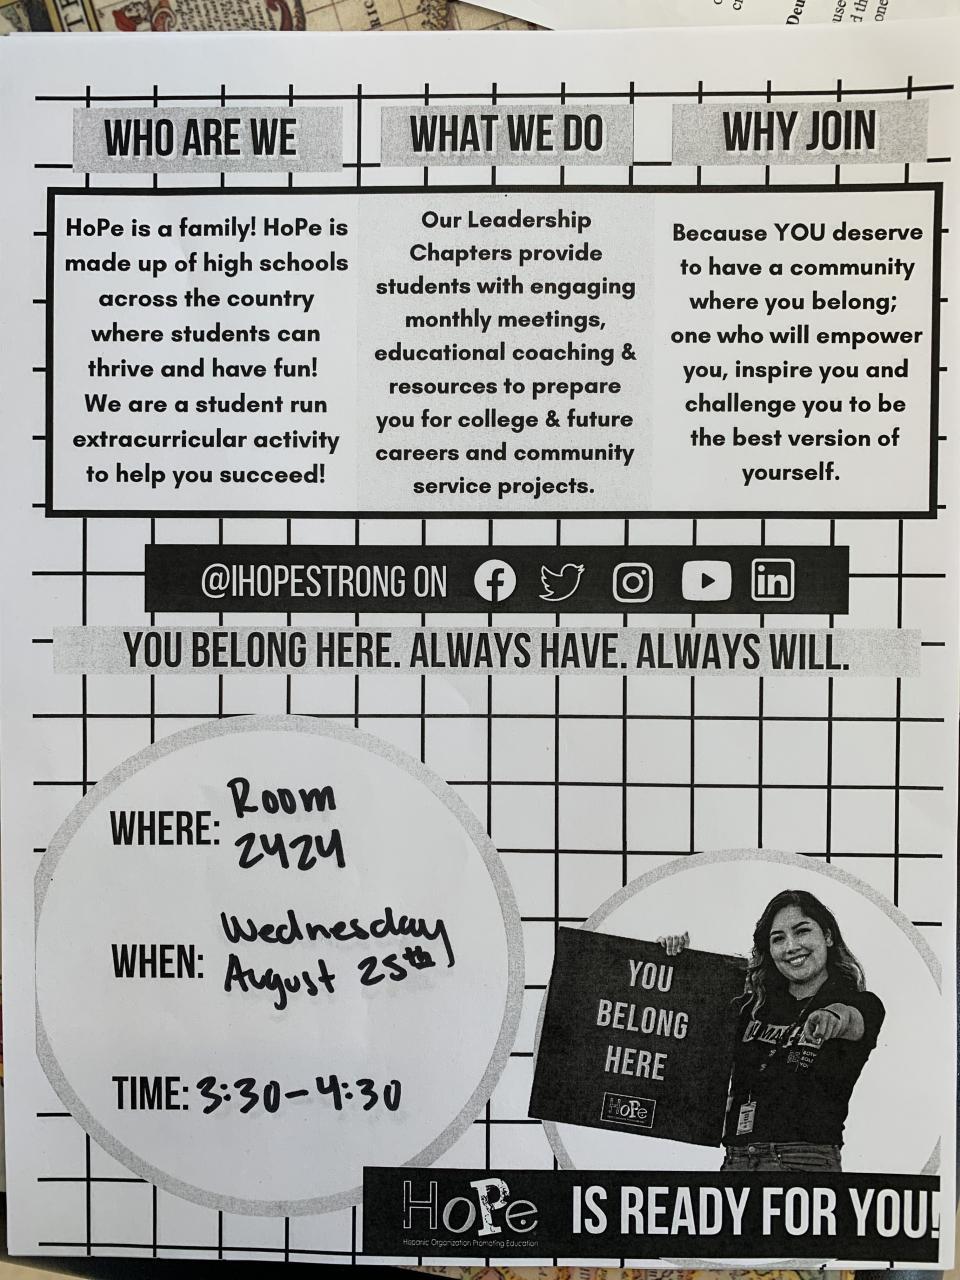 WHO ARE WE
HoPe is a family! HoPe is
made up of high schools
across the country
where students can
thrive and have fun!
We are a student run
extracurricular activity
to help you succeed!
WHAT WE DO
Our Leadership
Chapters provide
students with engaging
monthly meetings,
educational coaching &
resources to prepare
you for college & future
careers and community
service projects.
WHY JOIN
Because YOU deserve
to have a community
where you belong;
one who will empower
you, inspire you and
challenge you to be
the best version of
yourself.
@IHOPESTRONG ON
YOU BELONG HERE. ALWAYS HAVE. ALWAYS WILL.
WHERE: Room
2424
WHEN: Wednesday
August 25th
TIME: 3:30-4:30
YOU
BELONG
HERE
HoPe
HoPe IS READY FOR YOU!
Hispanic Organization Promoting Education